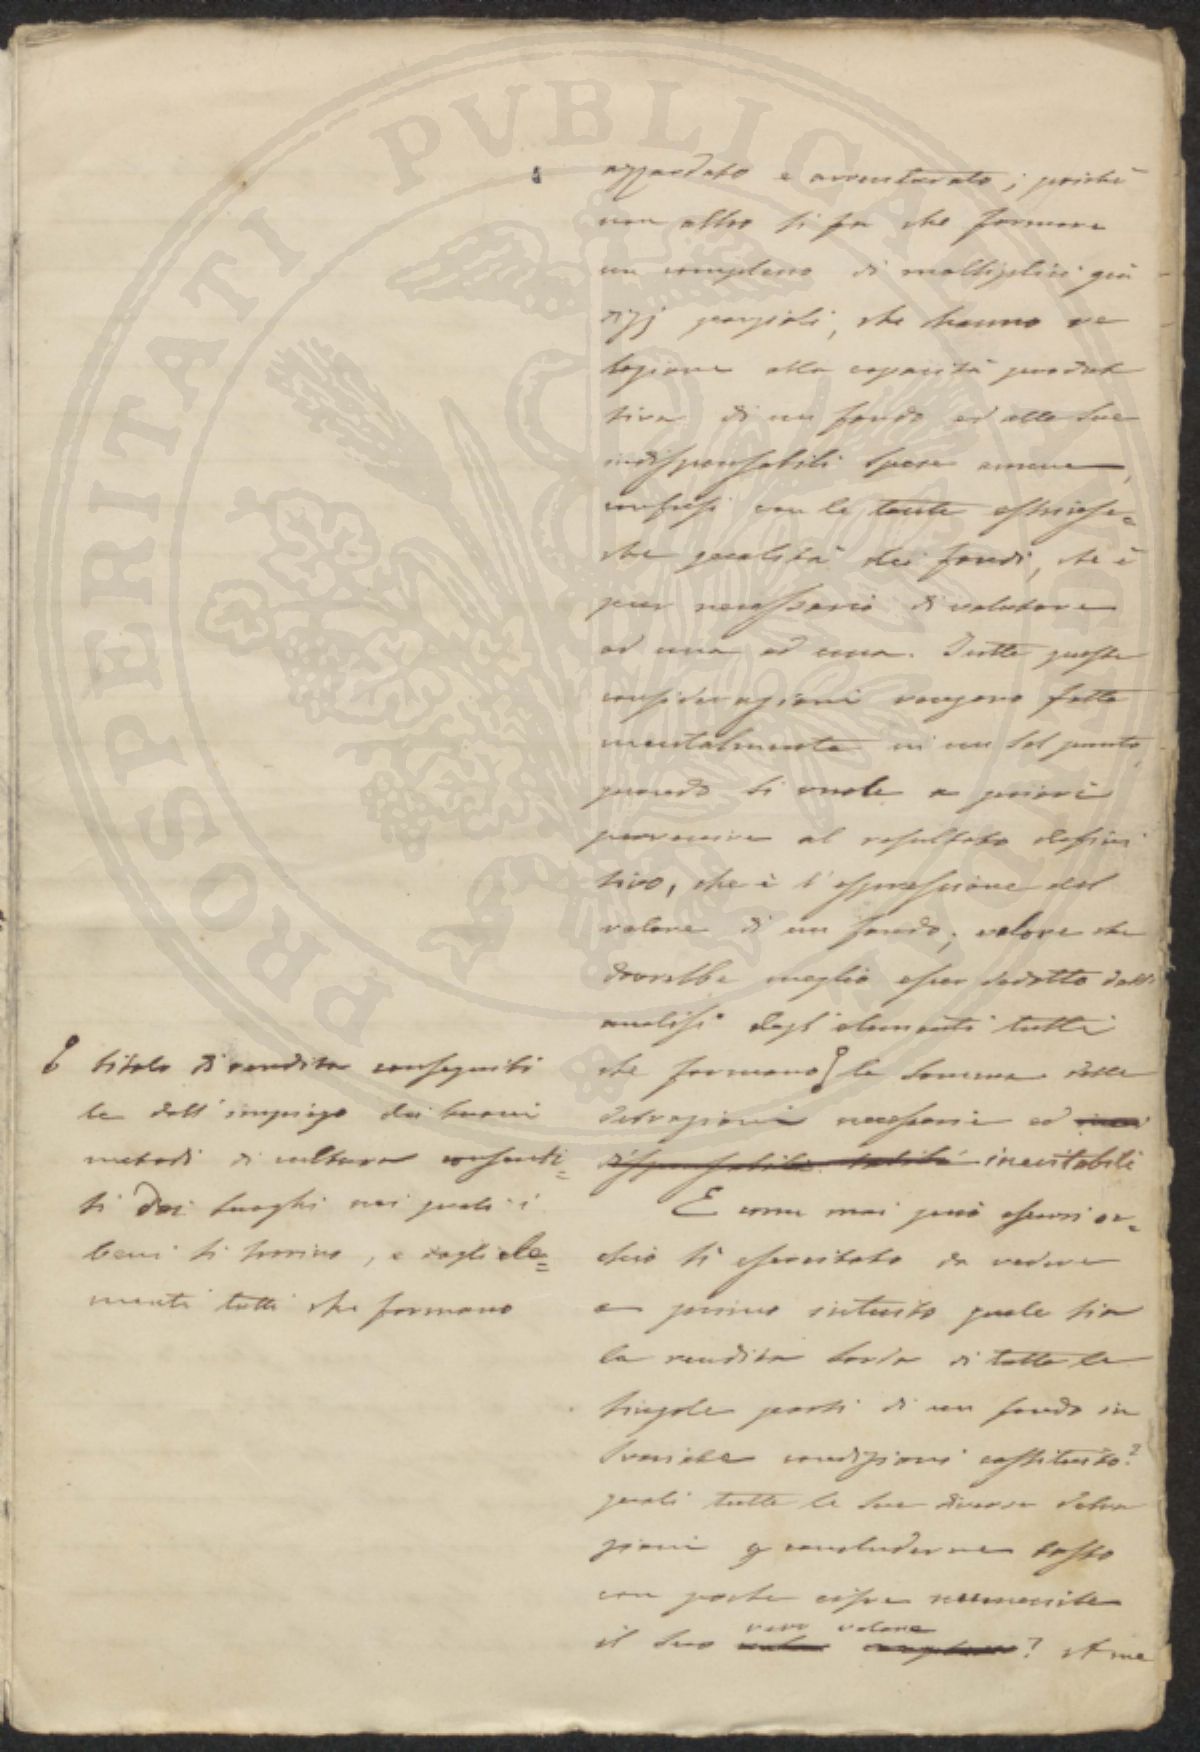 azzardato e avventurato; poichè
non altro si fa che formare
un complesso di moltiplici giu
dizj parziali, che hanno re
lazione alla capacità produt
tiva di un fondo ed alle sue
indispensabili spese annue,
confusi con le tante estrinse=
che qualità dei fondi, che è
pur necessario di valutare
ad una ad una. Tutte queste
considerazioni vengono fatte
mentalmente in un sol punto,
quando si vuole a priori
pervenire al resultato defini
tivo, che è l'espressione del
valore di un fondo; valore che
dovrebbe meglio esser dedotto dall'
analisi degl'elementi tutti
che formano la somma delle
detrazioni necessarie ed
inevitabili
E come mai può esservi oc=
chio sì esercitato da vedere
a primo intuito quale sia
la rendita lorda di tutte le
singole parti di un fondo in
svariate condizioni costituito?
quali tutte le sue diverse detra
zioni p concluderne tosto
con poche cifre numeriche
il suo vero valore? A me
titolo di rendita conseguibi
le dall'impiego dei buoni
metodi di cultura consenti=
ti dai luoghi nei quali i
beni si trovino, e dagli ele=
menti tutti che formano
PROSPERITATI PVBLICAE